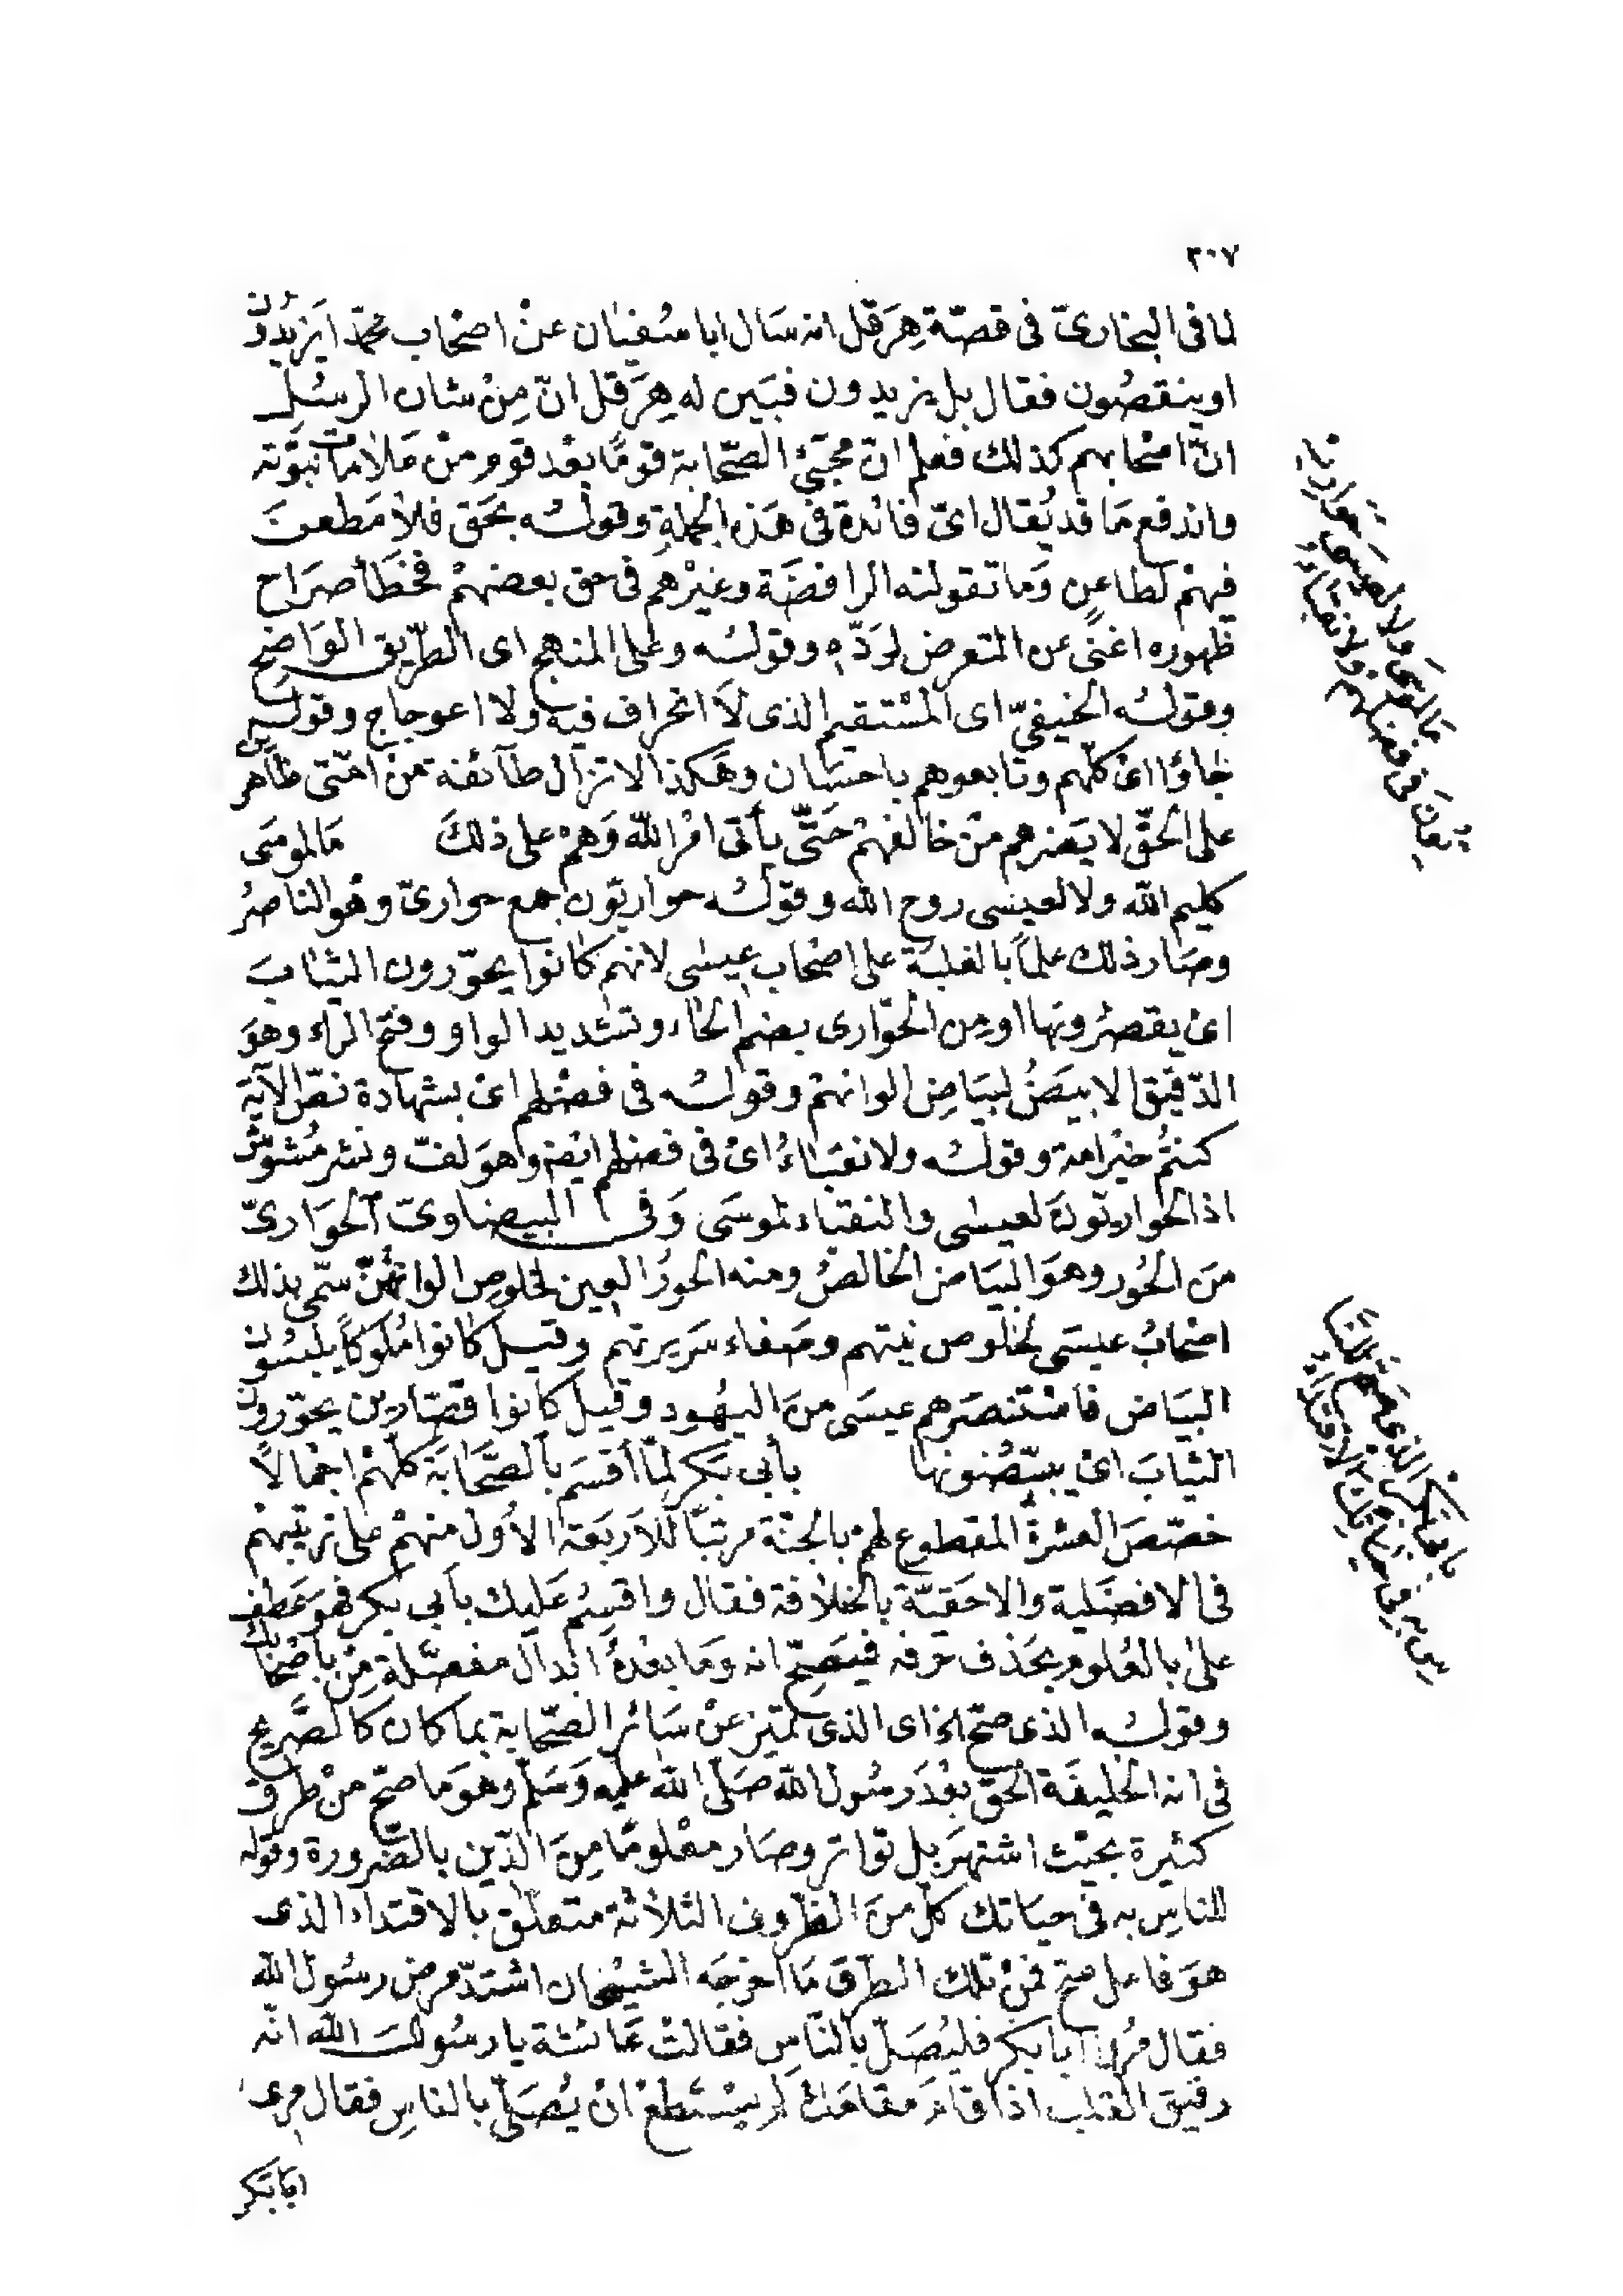 ٣٠٧
لما فى البخارىّ فى قصّة هِرَقل انه سَال ابا سُفيٰان عنْ اصْحٰاب محمّد ايَزيدُونَ
او ينقصُون فقال بل يزيدون فبَين له هِرَقل انّ مِنْ شان الرسُل
انّ اصْحابهم كذلك فعلم انّ مجىْٔ الصّحابة قومًا بعْد قوم منْ عَلامات نبوّته
واندفع مَا قد يُقال اىّ فائدة فى هَذه الجملةِ وقولُـه بحَق فلاَ مَطعنَ
فيهمْ لطاعنٍ وَما تقولته الرافضَة وغيْرهم فى حق بعضهمْ فخطَأ صرَاح
ظهوره اغنىٰ عن التعرض لرَدّه وقولُـه وعلى المنهج اى الطّريق الوَاضِح
وقولُه الحنيفىّ اى المسْتقيم الذى لاَ انحراف فيه ولا اعوجاج وقولُـه
جٰاؤا اىْ كلّهم وتابعوهم باحسَان وهَكذا لا تزال طآئفة منْ امّتى ظاهرين
على الحَقّ لا يَضرهم مَنْ خالفهمْ حَتّى يأتى امْر اللّه وَهمْ على ذلكَ مَا لموسَى
كليم اللّه ولا لعيسى روح اللّه وقوْلُـه حواريّون جمع حوارىّ وهْو الناصرُ
وصَار ذلك علماً بالغلبَة على اصْحاب عيسٰى لانهم كانوا يحوّرون الثيَابَ
اىْ يقصرُونهَا او مِن الحوّارى بضم الحٰاء وتشديد الواو وفتح الراء وهوَ
الدّقيق الابيَضُ لبيَاضِ الوانهمْ وقولُـه فى فضْلهم اىْ بشهادة نصّ الآية
كنتُم خيْر امة وقولُـه ولا نقبَاءُ اىْ فى فضلهم ايْضا وهوَ لفّ ونشر مُشوّش
اذ الحواريّونَ لعيسٰى والنقبَاء لموسَى وَفى البيضاوىّ الحوَارىّ
منَ الحُور وهوَ البيَاض الخالصُ ومنه الحورُ العين لخلوص الوانهُنّ سمّى بذلك
اصْحابُ عيسَى لخلوص نيتهم وصَفاء سَريرتهم وقيل كانوا مُلوكاً يلبسُونَ
البيَاض فاسْتنصَرهم عيسَى منَ اليهُودِ وقيل كانوا قصّارين يحوّرون
الثيابَ اىْ يبيّضُونها بأبى بَكر لمّا أقسَم بالصَّحَابَة كلّهمْ اجْمالاً
خصّصَ العشرةَ المقطوع لهمْ بالجنّة مرتبًا للأربَعة الأوَل منهمْ على ترتيبهمْ
فى الافضَلية والاحَقيّة بالخلاَفة فقال واقسِمُ عَليك بأبى بكر فهوَ عَطف
علىٰ بالعُلوم بحَذف حَرفه فيَصِحّ انه وَما بعْدهُ ابْدال مفصَّلة مِنْ بأصْحَابكَ
وقولُـه الذى صَحّ الخ اى الذى تميّز عنْ سَائر الصّحابة بما كان كالصَّريح
فى انه الخليفَة الحَقّ بعْدَ رسُول اللّه صَلّى اللّه عليْه وَسَلّم وهوَ ما صَحّ منْ طرق
كثيرة بحيْث اشتهرَ بل تواتر وصَار معْلومًا مِنَ الدّين بالضّرورة وقوله
للناسِ به فى حيَاتك كلّ منَ الظرُوف الثلاَثة متعلّق بالاقتداء الذى
هوَ فاعل صَحّ فمنْ تلك الطرق مَا اخرجَه الشيْخان اشتدّ مرض رسُول اللّه
فقال مُروا ابا بكر فليُصَلّ بالناس فقالتْ عَائشة يا رسُولَ اللّه انّه
رقيق القلب اذا قامَ مقامَك لم يسْتطعْ انْ يُصَلّى بالناسِ فقال مرى
ابَا بَكر
مَا لموسَى ولا لعيسَى حوَاريون
يّون فى فضلهم ولا نقباءُ
بأبى بَكر الذى صَحّ للنّاس
س به فى حيَاتك الاقتدَاءُ